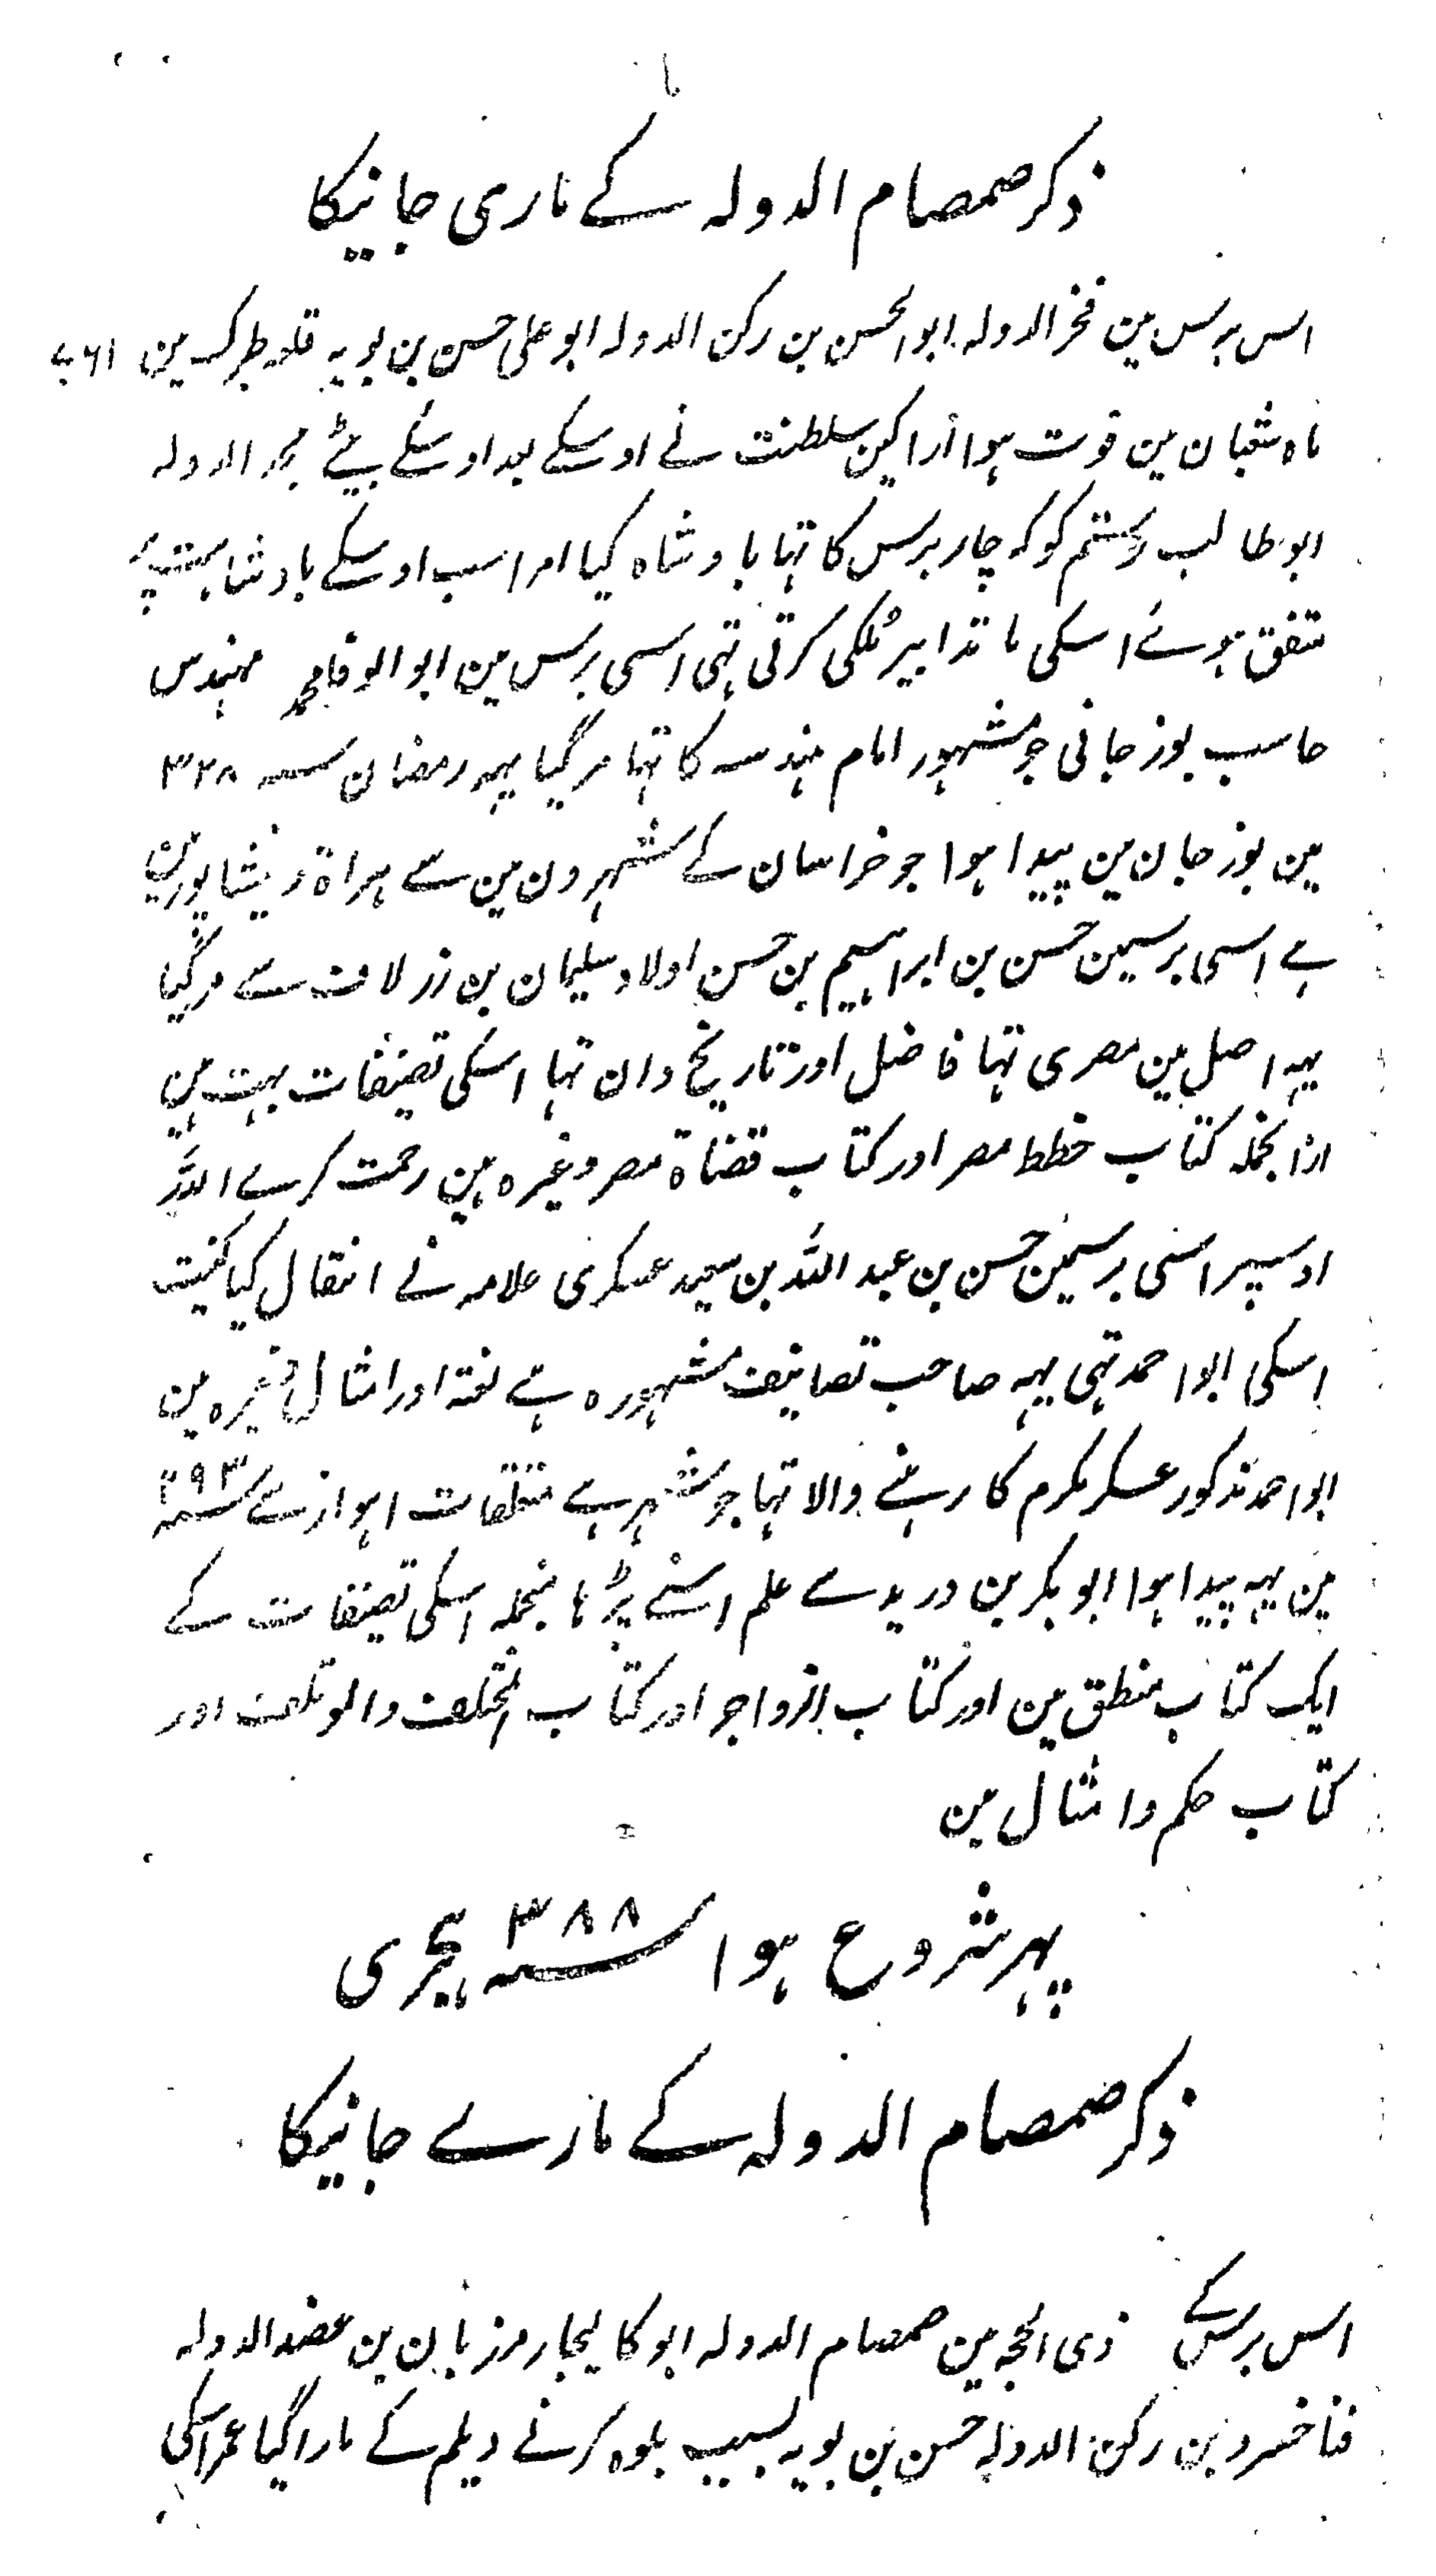 ذکر صمصام الدولہ کے ماری جانیکا
اس برس مین فخر الدولہ ابو الحسن بن رکن الدولہ ابو علی حسن بن بویہ قلعہ طبرک مین
ماہ شعبان مین فوت ہوا اراکین سلطنت نے اوسکے بعد اوسکے بیٹے مجد الدولہ
ابو طالب رستم کو کہ چار برس کا تہا بادشاہ کیا امرا سب اوسکے بادشاہت پر
متفق ہوئے اسکی ما تدابیر ملکی کرتی تہی اسی برس مین ابو الوفا محمد مہندس
حاسب بوزجانی جو مشہور امام ہندسہ کا تہا مر گیا یہہ رمضان سنہ ۳۲۸
مین بوزجان مین پیدا ہوا جو خراسان کے شہرون مین سے ہراۃ و نیشاپور مین
ہے اسی برسمین حسن بن ابراہیم بن حسن اولاد سلیمان بن زولاق سے مر گیا
یہہ اصل مین مصری تہا فاضل اور تاریخ دان تہا اسکی تصنیفات بہت ہین
ازانجملہ کتاب خطط مصر اور کتاب قضاۃ مصر وغیرہ ہین رحمت کرے اللہ
اوسپر اسی برسمین حسن بن عبد اللہ بن سعید عسکری علامہ نے انتقال کیا کنیت
اسکی ابو احمد تہی یہہ صاحب تصانیف مشہورہ ہے لغۃ اور امثال وغیرہ مین
ابو احمد مذکور عسکر مکرم کا رہنے والا تہا جو شہر ہے متعلقات اہواز سے سنہ ۲۹۳
مین یہہ پیدا ہوا ابو بکر بن درید سے علم اسنے پڑہا منجملہ اسکی تصنیفات کے
ایک کتاب منطق مین اور کتاب الزواجر اور کتاب المختلف والموتلف اور
کتاب حکم و امثال مین
پہر شروع ہوا سنہ ۳۸۸ ہجری
ذکر صمصام الدولہ کے مارے جانیکا
اس برس کے ذی الحجہ مین صمصام الدولہ ابو کالیجار مرزبان بن عضد الدولہ
فناخسرو بن رکن الدولہ حسن بن بویہ بسبب بلوہ کرنے دیلم کے مارا گیا عمر اسکی